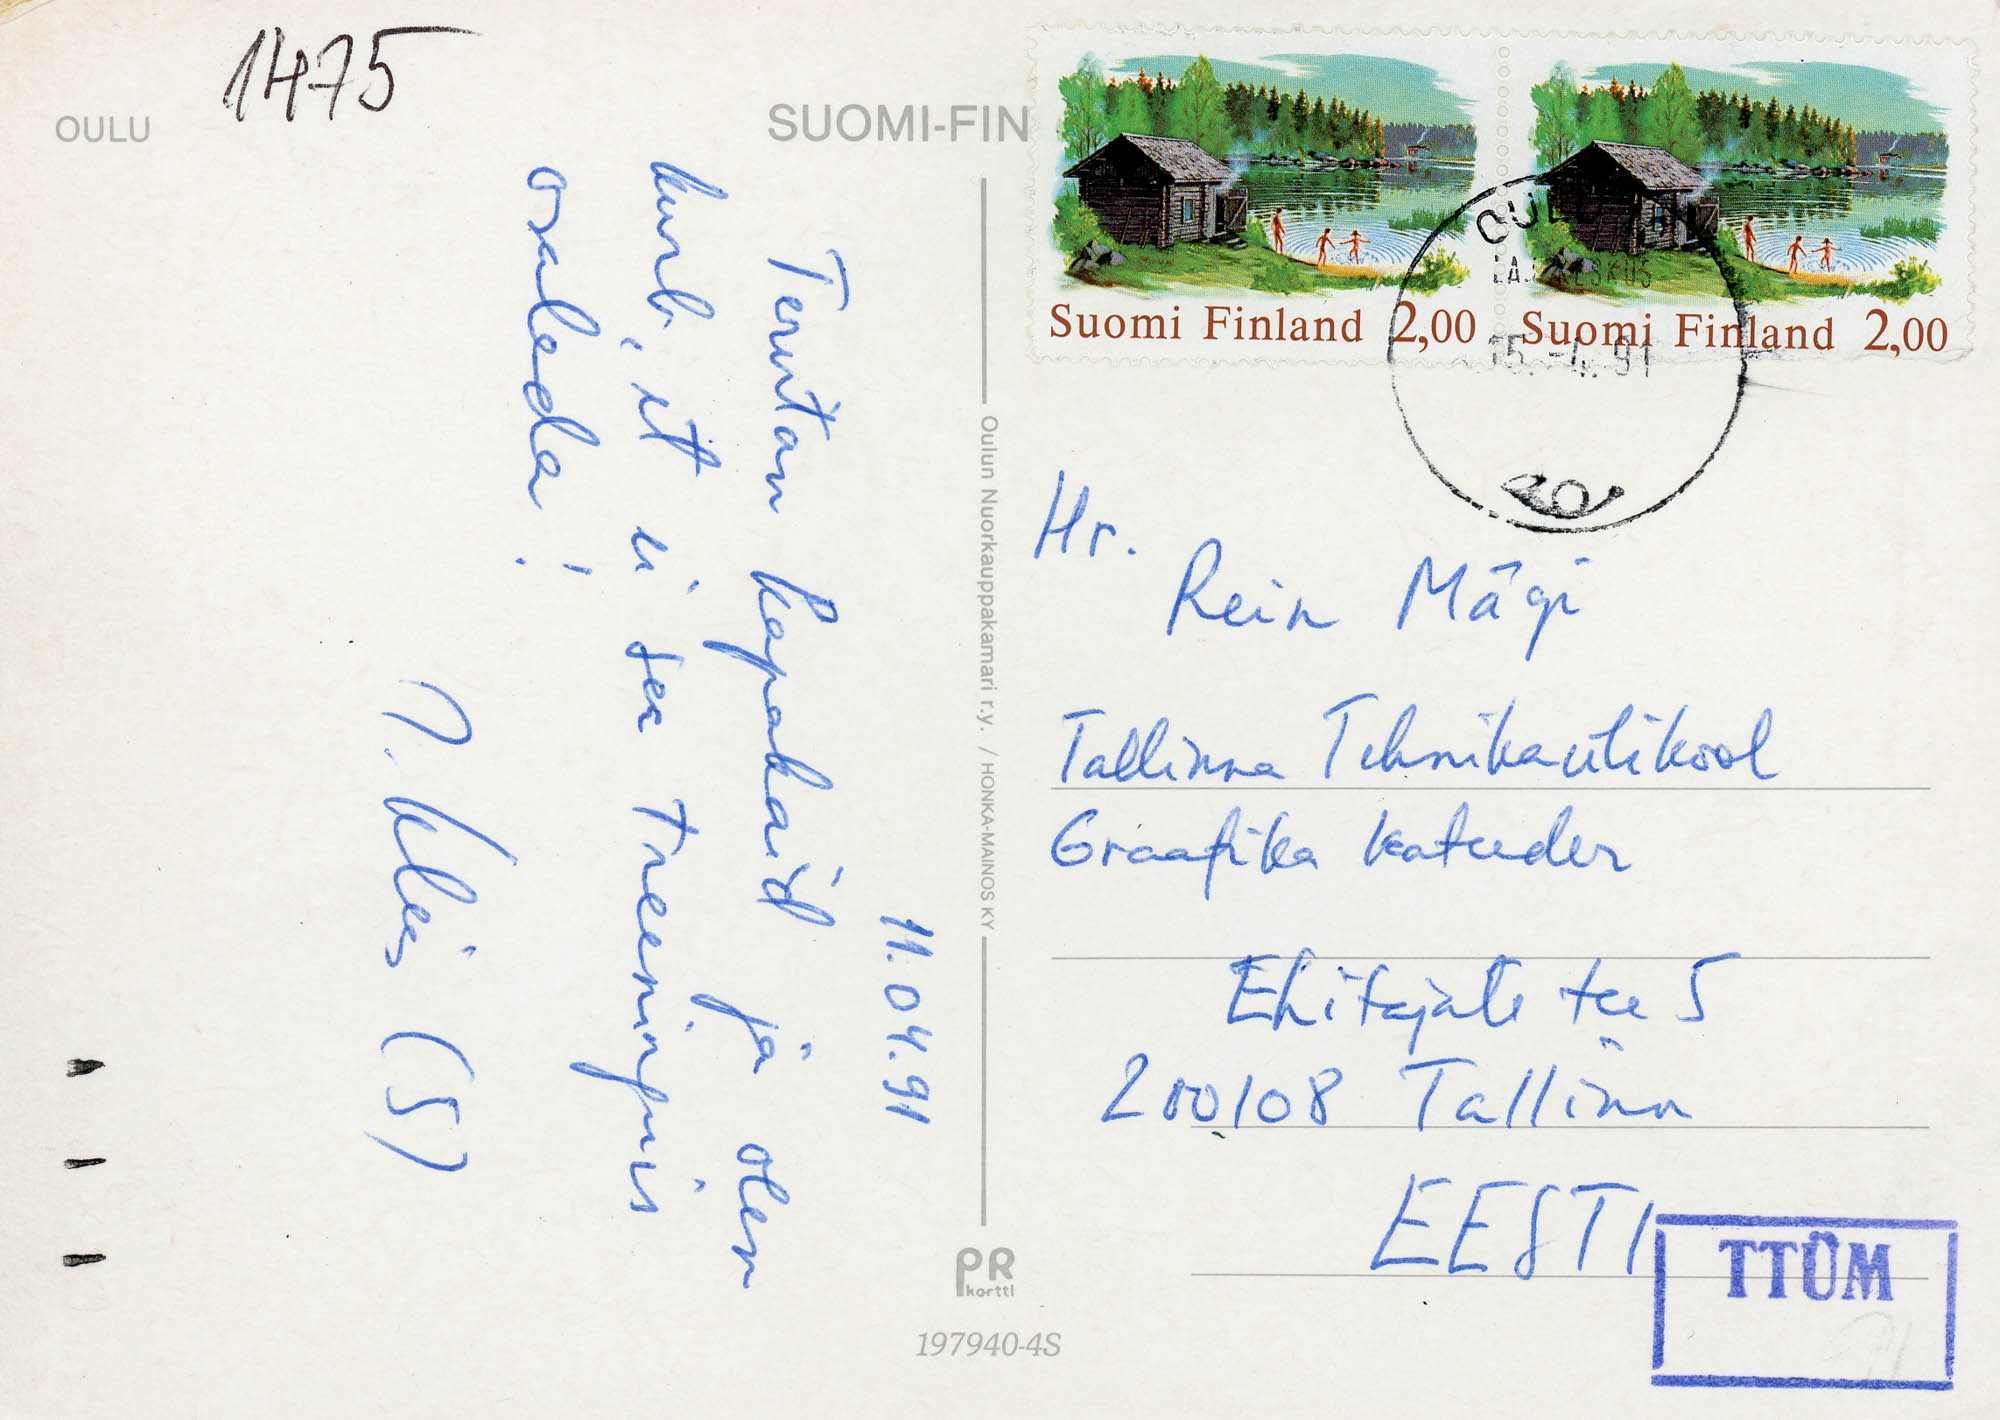 1475
OULU
SUOMI-FIN
Suomi Finland 2,00
Suomi Finland 2,00
15.-4.91
11.04.91
Tervitan kapakaid ja olen
kurb, et ei saa treeningus
osaleda!
(S)
Oulun Nuorkauppakamari r.y. / HONKA-MAINOS KY
Hr.
Rein Mägi
Tallinna Tehnikaülikool
Graafika kateeder
Ehitajate tee 5
200108 Tallinn
EESTI
TTÜM
PR
kortti
197940-4S